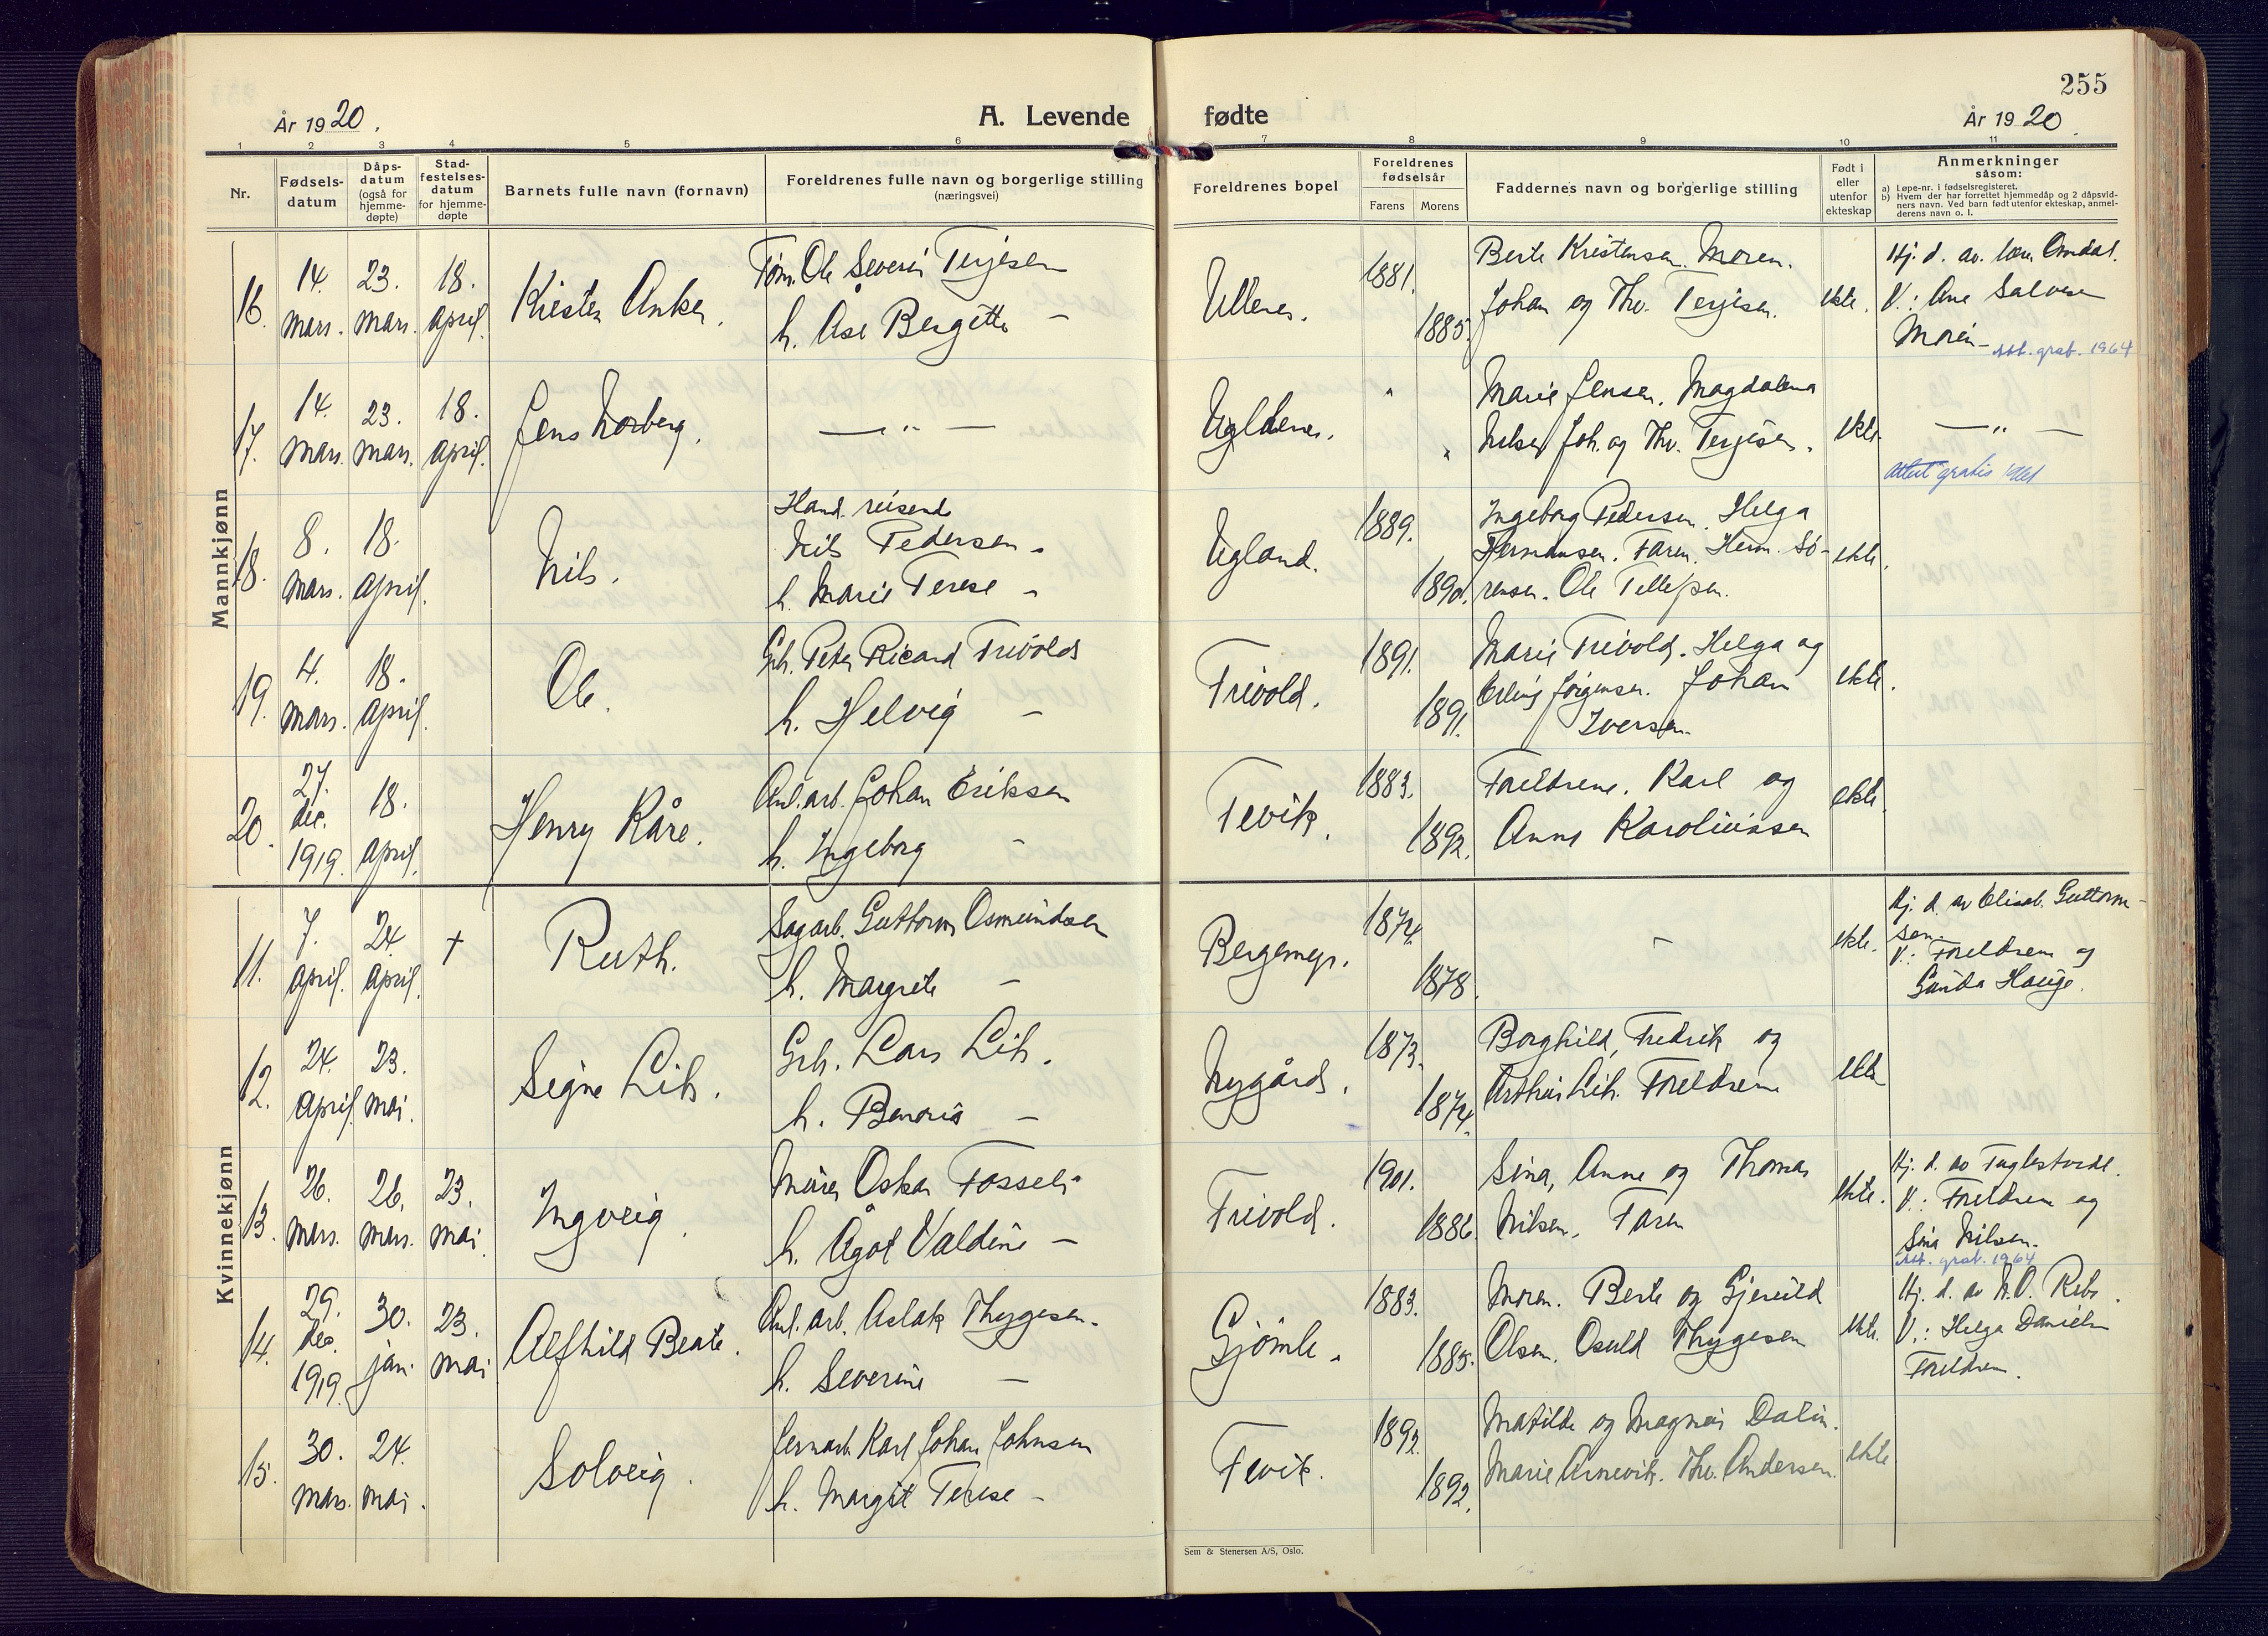 255
År 1920.
A. Levende fødte
År 1920.
1 2 3 4 5 6 7 8 9 10 11
Nr.
Fødsels-
datum
Dåps-
datum
(også for
hjemme-
døpte)
Stad-
festelses-
datum
for hjemme-
døpte
Barnets fulle navn (fornavn)
Foreldrenes fulle navn og borgerlige stilling
(næringsvei)
Foreldrenes bopel
Foreldrenes
fødselsår
Farens Morens
Faddernes navn og borgerlige stilling
Født i
eller
utenfor
ekteskap
Anmerkninger
såsom:
a) Løpe-nr. i fødselsregisteret.
b) Hvem der har forrettet hjemmedåp og 2 dåpsvid-
ners navn. Ved barn født utenfor ekteskap, anmel-
derens navn o. l.
Mannkjønn
16.
14.
mars.
23.
mars.
18.
april.
Kristen Anker.
Tøm. Ole Severin Terjesen
h. Åse Bergitte —
1881.
1885.
Berte Kristensen. Moren.
Johan og Thv. Terjesen.
ekte.
Hj. d. av. lærer Omdal.
V.: Ane Salvesen
Moren —
Att. grat. 1964
17.
14.
mars.
23.
mars.
18.
april.
Jens Norberg.
— " —
"
"
Marie Jensen. Magdalena
Nilsen, Joh. og Thv. Terjesen.
ekte.
— " —
Attest gratis
18.
8.
mars.
18.
april.
Nils.
Hand. reisende
Nils Pedersen.
h. Marie Terese —
Ugland.
1889.
1890.
Ingeborg Pedersen. Helga
Hermansen. Faren. Herm. Sø-
rensen. Ole Tellefsen.
ekte.
19.
4.
mars.
18.
april.
Ole.
Grb. Peter Ricard Trivolds
h. Helvig —
Frivold.
1891.
1891.
Marie Frivold. Helga og
Erling Jørgensen. Johan
Iversen.
ekte.
20.
27.
dec.
1919.
18.
april.
Henry Kåre.
Anl. arb. Johan Eriksen
h. Ingeborg —
Fevik.
1883.
1892.
Foreldrene. Karl og
Anne Karolinissen
ekte.
Kvinnekjønn
11.
7.
april.
24
april.
†
Ruth.
Sagarb. Guttorm Osmundsen
h. Margrete —
Bergemyr.
1874.
1878.
—
ekte.
Hj. d. av Elisab. Guttorm-
sen.
V.: Foreldrene og
Gunda Hauge.
12.
24.
april.
23.
mai.
Signe Lih.
Grb. Lars Lih.
h. —
Nygård.
1873.
1874.
Borghild, Fredrik og
Arthur Lih. Foreldrene
ekte
13.
26.
mars.
26.
mars.
23.
mai.
Ingveig.
Murer Oskar Fosseli
h. Ågot Valdine —
Frivold.
1901.
1886.
Sina, Anne og Thomas
Nilsen. Faren
ekte.
Hj. d. av Fuglestvedt.
V.: Foreldrene og
Sina Nilsen.
Att. grat. 1964
14.
29.
des.
1919.
30.
jan.
23.
mai
Alfhild Beate.
Anl. arb. Aslak Thygesen.
h. Severine —
Gjømle.
1883.
1885.
Moren. Berte og Gjeruld
Olsen. Osuld Thygesen
ekte.
Hj. d. av
V.: Helga Danielsen
Foreldrene.
15.
30.
mars.
24.
mai.
Solveig.
Jernarb. Karl Johan Johnsen
h. Margit Terese —
Fevik.
1892.
1892.
Matilde og Magnus Dalin.
Marie Arnevik. Thv. Andersen.
ekte
Sem & Stenersen A/S, Oslo.